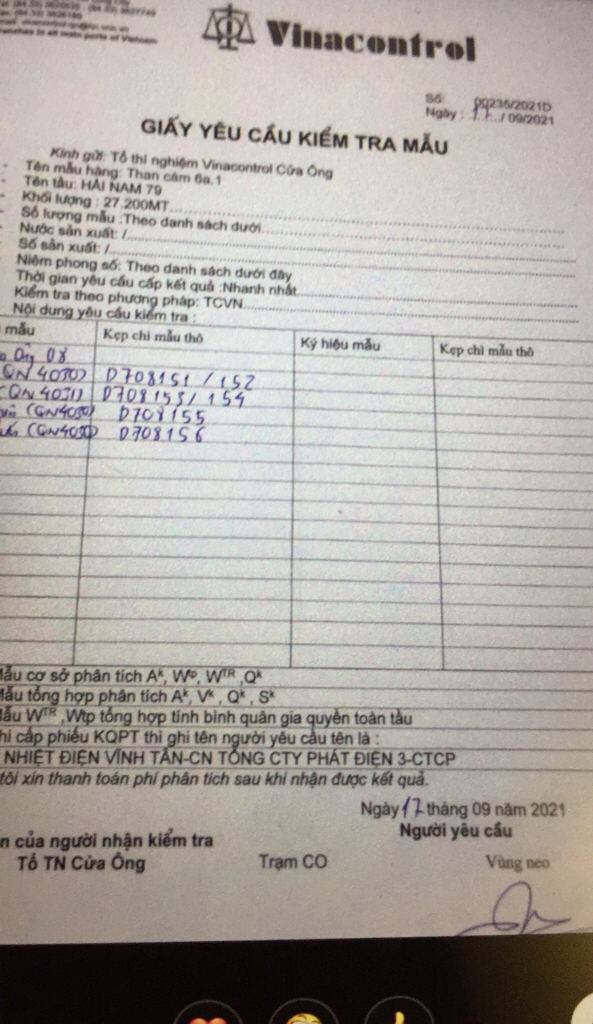 branches in all main ports of Vietnam
Vinacontrol
Số: 00235/2021D
Ngày : 17 / 09/2021
GIẤY YÊU CẦU KIỂM TRA MẪU
Kính gửi: Tổ thí nghiệm Vinacontrol Cửa Ông
- Tên mẫu hàng: Than cám 6a.1
- Tên tàu: HẢI NAM 79
- Khối lượng : 27.200MT
- Số lượng mẫu :Theo danh sách dưới
- Nước sản xuất: /
Số sản xuất: /
Niêm phong số: Theo danh sách dưới đây
Thời gian yêu cầu cấp kết quả :Nhanh nhất
Kiểm tra theo phương pháp: TCVN
Nội dung yêu cầu kiểm tra :
mẫu Kẹp chì mẫu thô Ký hiệu mẫu Kẹp chì mẫu thô
Ông 08
QN 4030) D708151 / 152
(QN 4031) D708153/ 154
(QN4030) D708155
(QN4030) D708156
Mẫu cơ sở phân tích Aᵏ, Wᵗᵖ, Wᵀᴿ ,Qᵏ
Mẫu tổng hợp phân tích Aᵏ, Vᵏ , Qᵏ , Sᵏ
Mẫu Wᵀᴿ ,Wtp tổng hợp tính bình quân gia quyền toàn tàu
hi cấp phiếu KQPT thì ghi tên người yêu cầu tên là :
NHIỆT ĐIỆN VĨNH TÂN-CN TỔNG CTY PHÁT ĐIỆN 3-CTCP
tôi xin thanh toán phí phân tích sau khi nhận được kết quả.
Ngày 17 tháng 09 năm 2021
n của người nhận kiểm tra Người yêu cầu
Tổ TN Cửa Ông Trạm CO Vùng neo